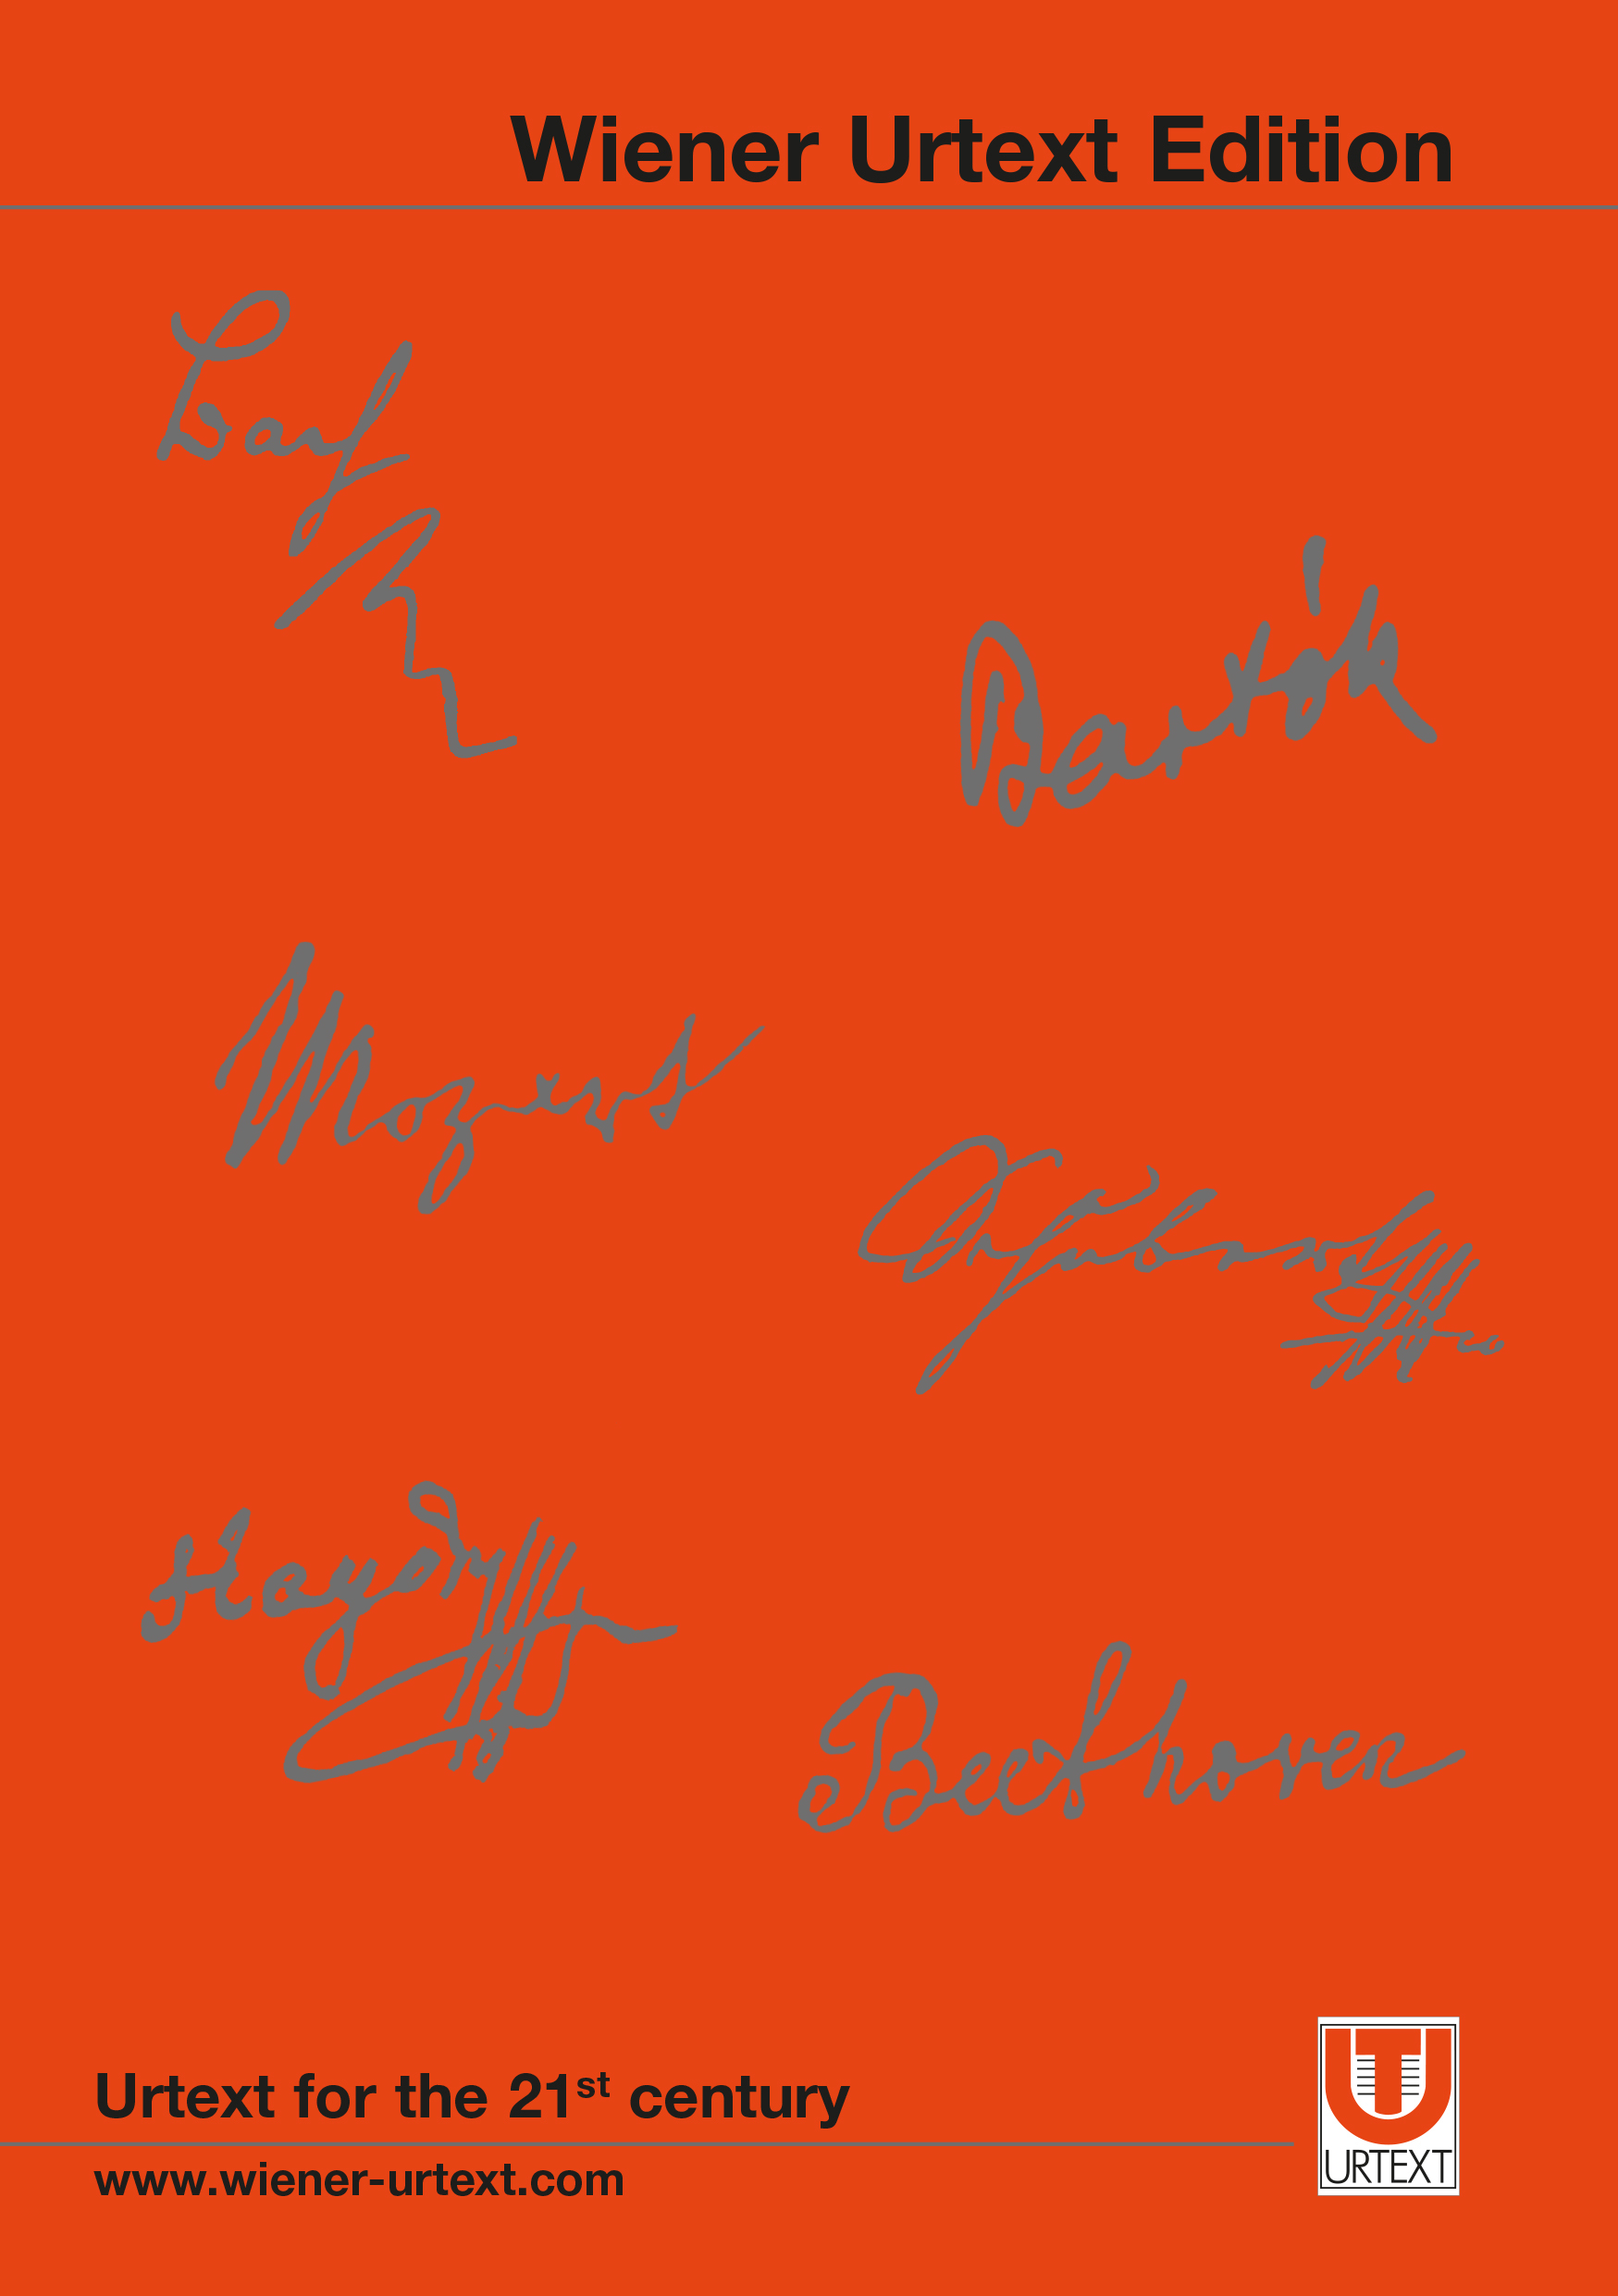 Wiener Urtext Edition
Bach
Bartók
Mozart
Haydn
Beethoven
Urtext for the 21st century
www.wiener-urtext.com
URTEXT